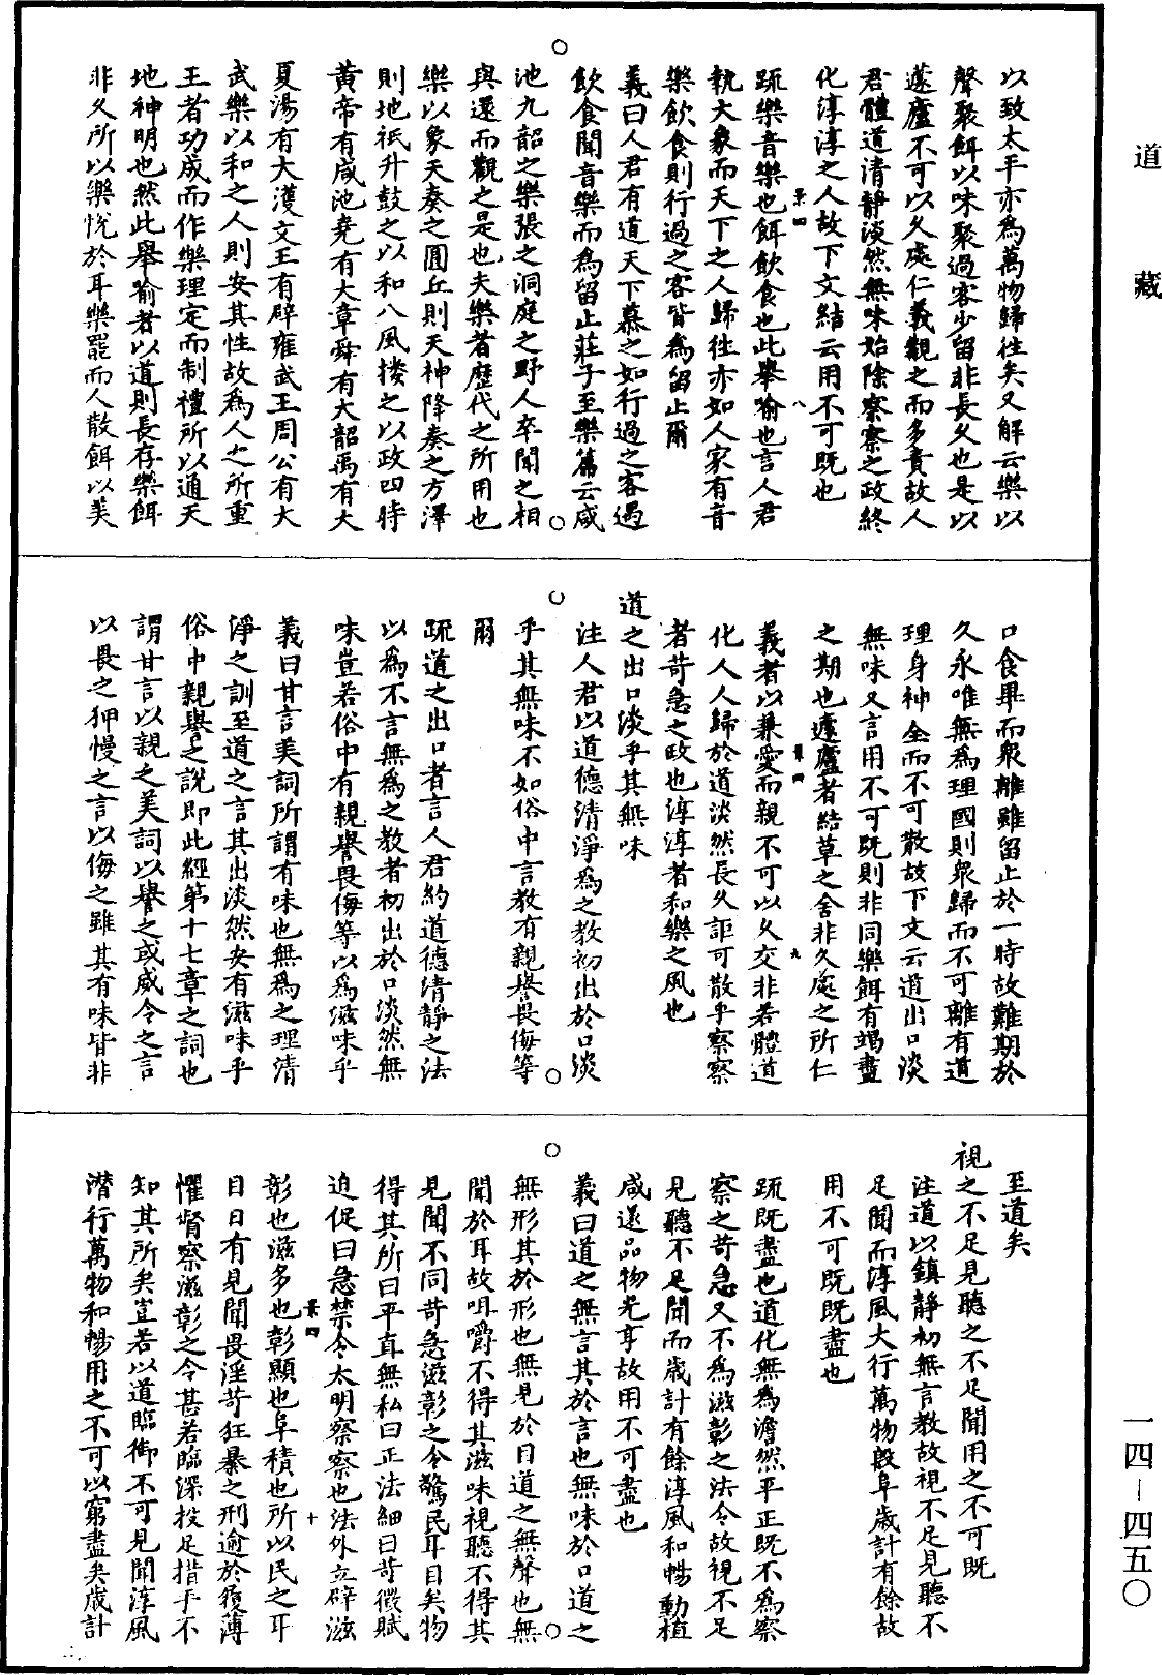 道藏
以致太平亦為萬物歸往矣又解云樂以
聲聚餌以味聚過客少留非長久也是以
蘧廬不可以久處仁義觀之而多責故人
君體道清靜淡然無味始除察察之政終
化淳淳之人故下文結云用不可既也
疏樂音樂也餌飲食也此舉喻也言人君
執大象而天下之人歸往亦如人家有音
樂飲食則行過之客皆為留止爾
義曰人君有道天下慕之如行過之客遇
飲食聞音樂而為留止莊子至樂篇云咸
池九韶之樂張之洞庭之野人卒聞之相
與還而觀之是也夫樂者歷代之所用也
樂以象天奏之圓丘則天神降奏之方澤
則地祇升鼓之以和八風揍之以政四時
黃帝有咸池堯有大章舜有大韶禹有大
夏湯有大濩文王有辟雍武王周公有大
武樂以和之人則安其性故為人之所重
王者功成而作樂理定而制禮所以通天
地神明也然此舉喻者以道則長存樂餌
非久所以樂悅於耳樂罷而人散餌以美
口食畢而眾離雖留止於一時故難期於
久永唯無為理國則眾歸而不可離有道
理身神全而不可散故下文云道出口淡
無味又言用不可既則非同樂餌有竭盡
之期也蘧廬者結草之舍非久處之所仁
義者以兼愛而親不可以久交非若體道
化人人歸於道淡然長久詎可散乎察察
者苛急之政也淳淳者和樂之風也
道之出口淡乎其無味
注人君以道德清淨為之教初出於口淡
乎其無味不如俗中言教有親譽畏侮等
爾
疏道之出口者言人君約道德清靜之法
以為不言無為之教者初出於口淡然無
味豈若俗中有親譽畏侮等以為滋味乎
義曰甘言美詞所謂有味也無為之理清
淨之訓至道之言其出淡然安有滋味乎
俗中親譽之說即此經第十七章之詞也
謂甘言以親之美詞以譽之或威令之言
以畏之狎慢之言以侮之雖其有味皆非
至道矣
視之不足見聽之不足聞用之不可既
注道以鎮靜初無言教故視不足見聽不
足聞而淳風大行萬物殷阜歲計有餘故
用不可既既盡也
疏既盡也道化無為澹然平正既不為察
察之苛急又不為滋彰之法令故視不足
見聽不足聞而歲計有餘淳風和暢動植
咸遂品物光亨故用不可盡也
義曰道之無言其於言也無味於口道之
無形其於形也無見於目道之無聲也無
聞於耳故咀嚼不得其滋味視聽不得其
見聞不同苛急滋彰之令驚民耳目矣物
得其所曰平直無私曰正法細曰苛徵賦
迫促曰急禁令太明察察也法外立辟滋
彰也滋多也彰顯也阜積也所以民之耳
目日有見聞畏淫苛狂暴之刑逾於履薄
懼督察滋彰之令甚若臨深投足措手不
知其所矣豈若以道臨御不可見聞淳風
潛行萬物和暢用之不可以窮盡矣歲計
一四-四五〇